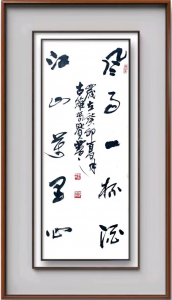 风雨一杯酒
江山萬里心
歲在癸卯夏月